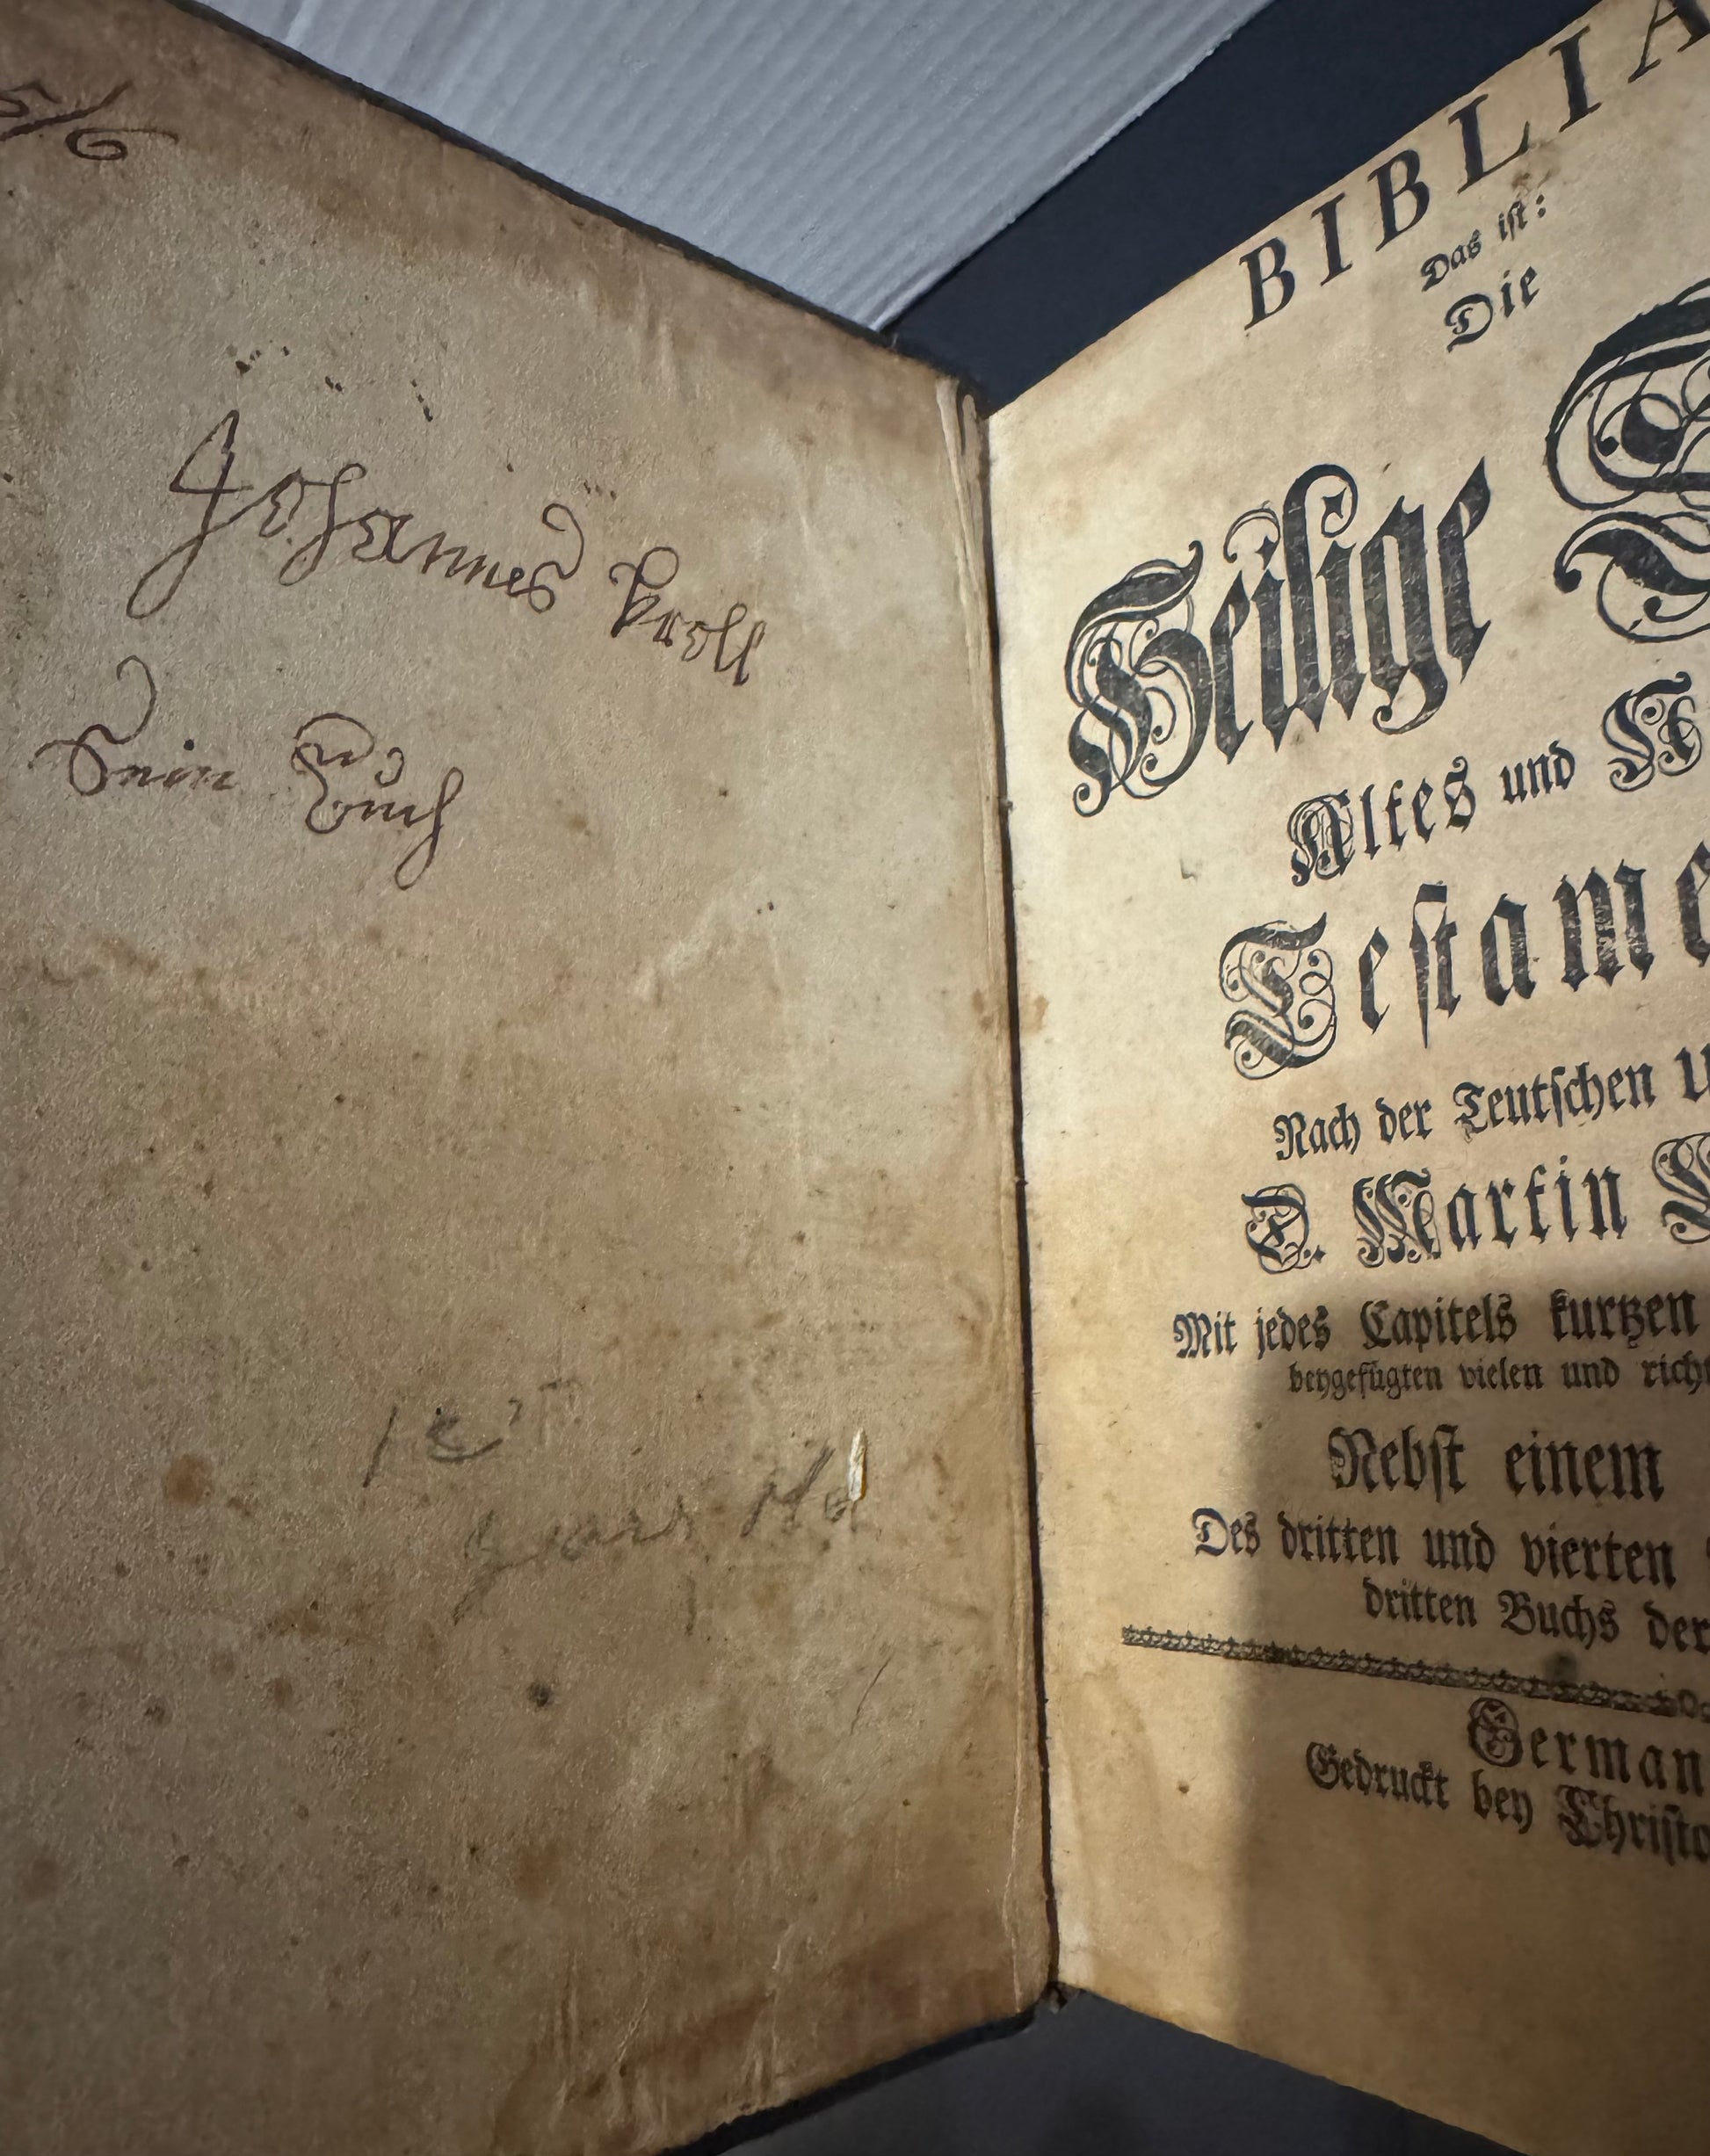 5/6
Johannes Kroll
Sein Buch
BIBLIA
Das ist:
Die
Heilige
Altes und
Testame
Nach der Teutschen
D. Martin
Mit jedes Capitels kurtzen
beygefügten vielen und richt
Nebst einem
Des dritten und vierten
dritten Buchs der
German
Gedruckt bey Christo